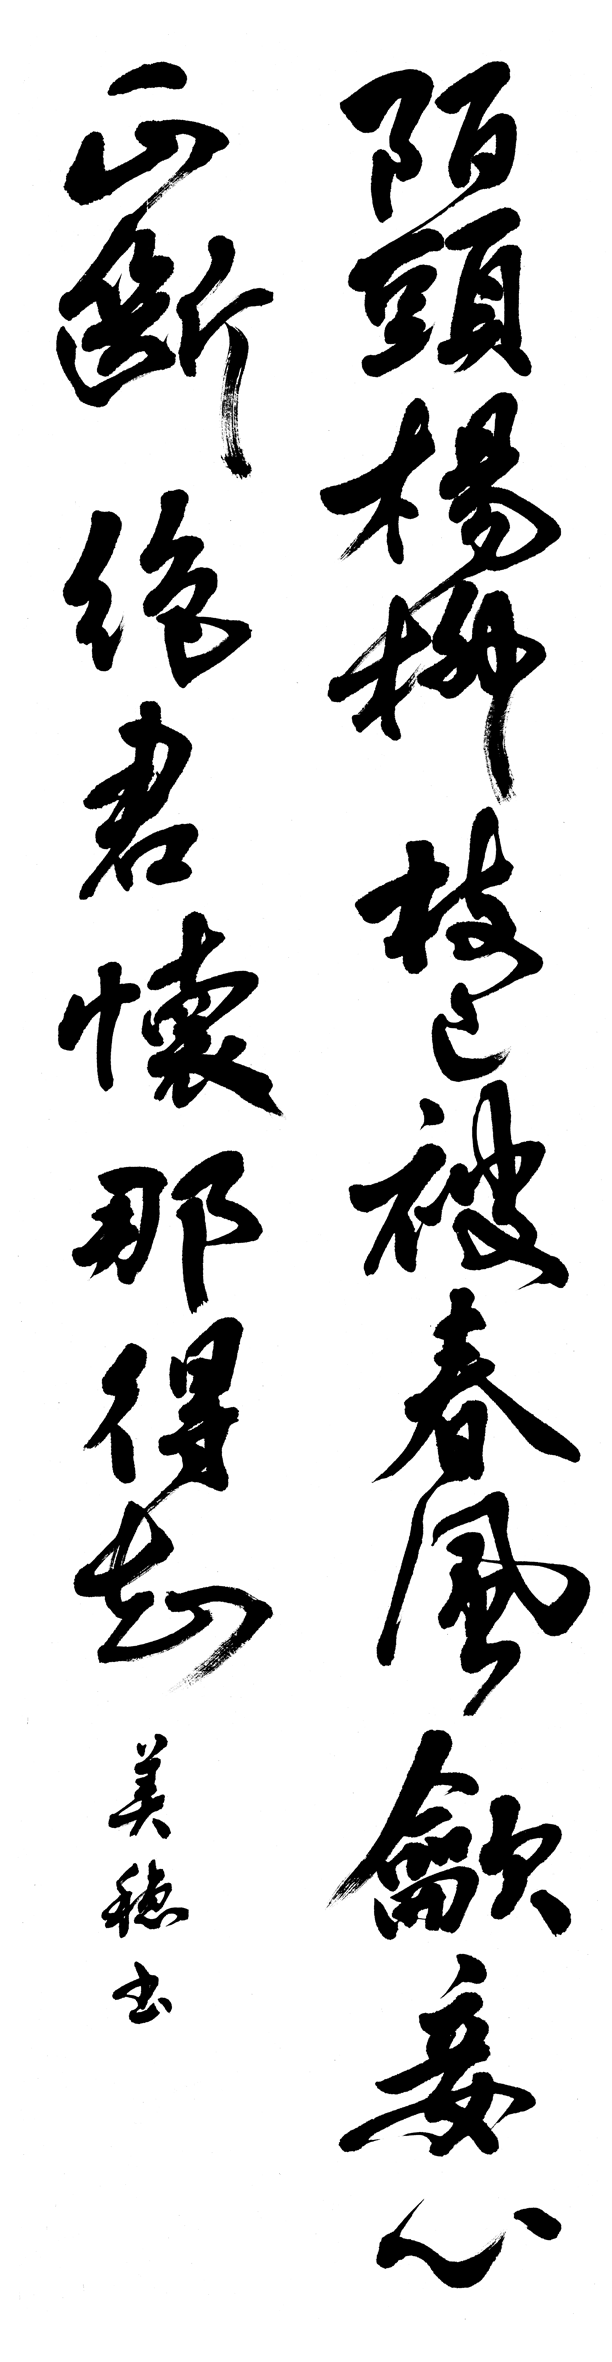 陌頭楊柳枝已被春風龡妾心
正斷絶君懷那得知
美穂書